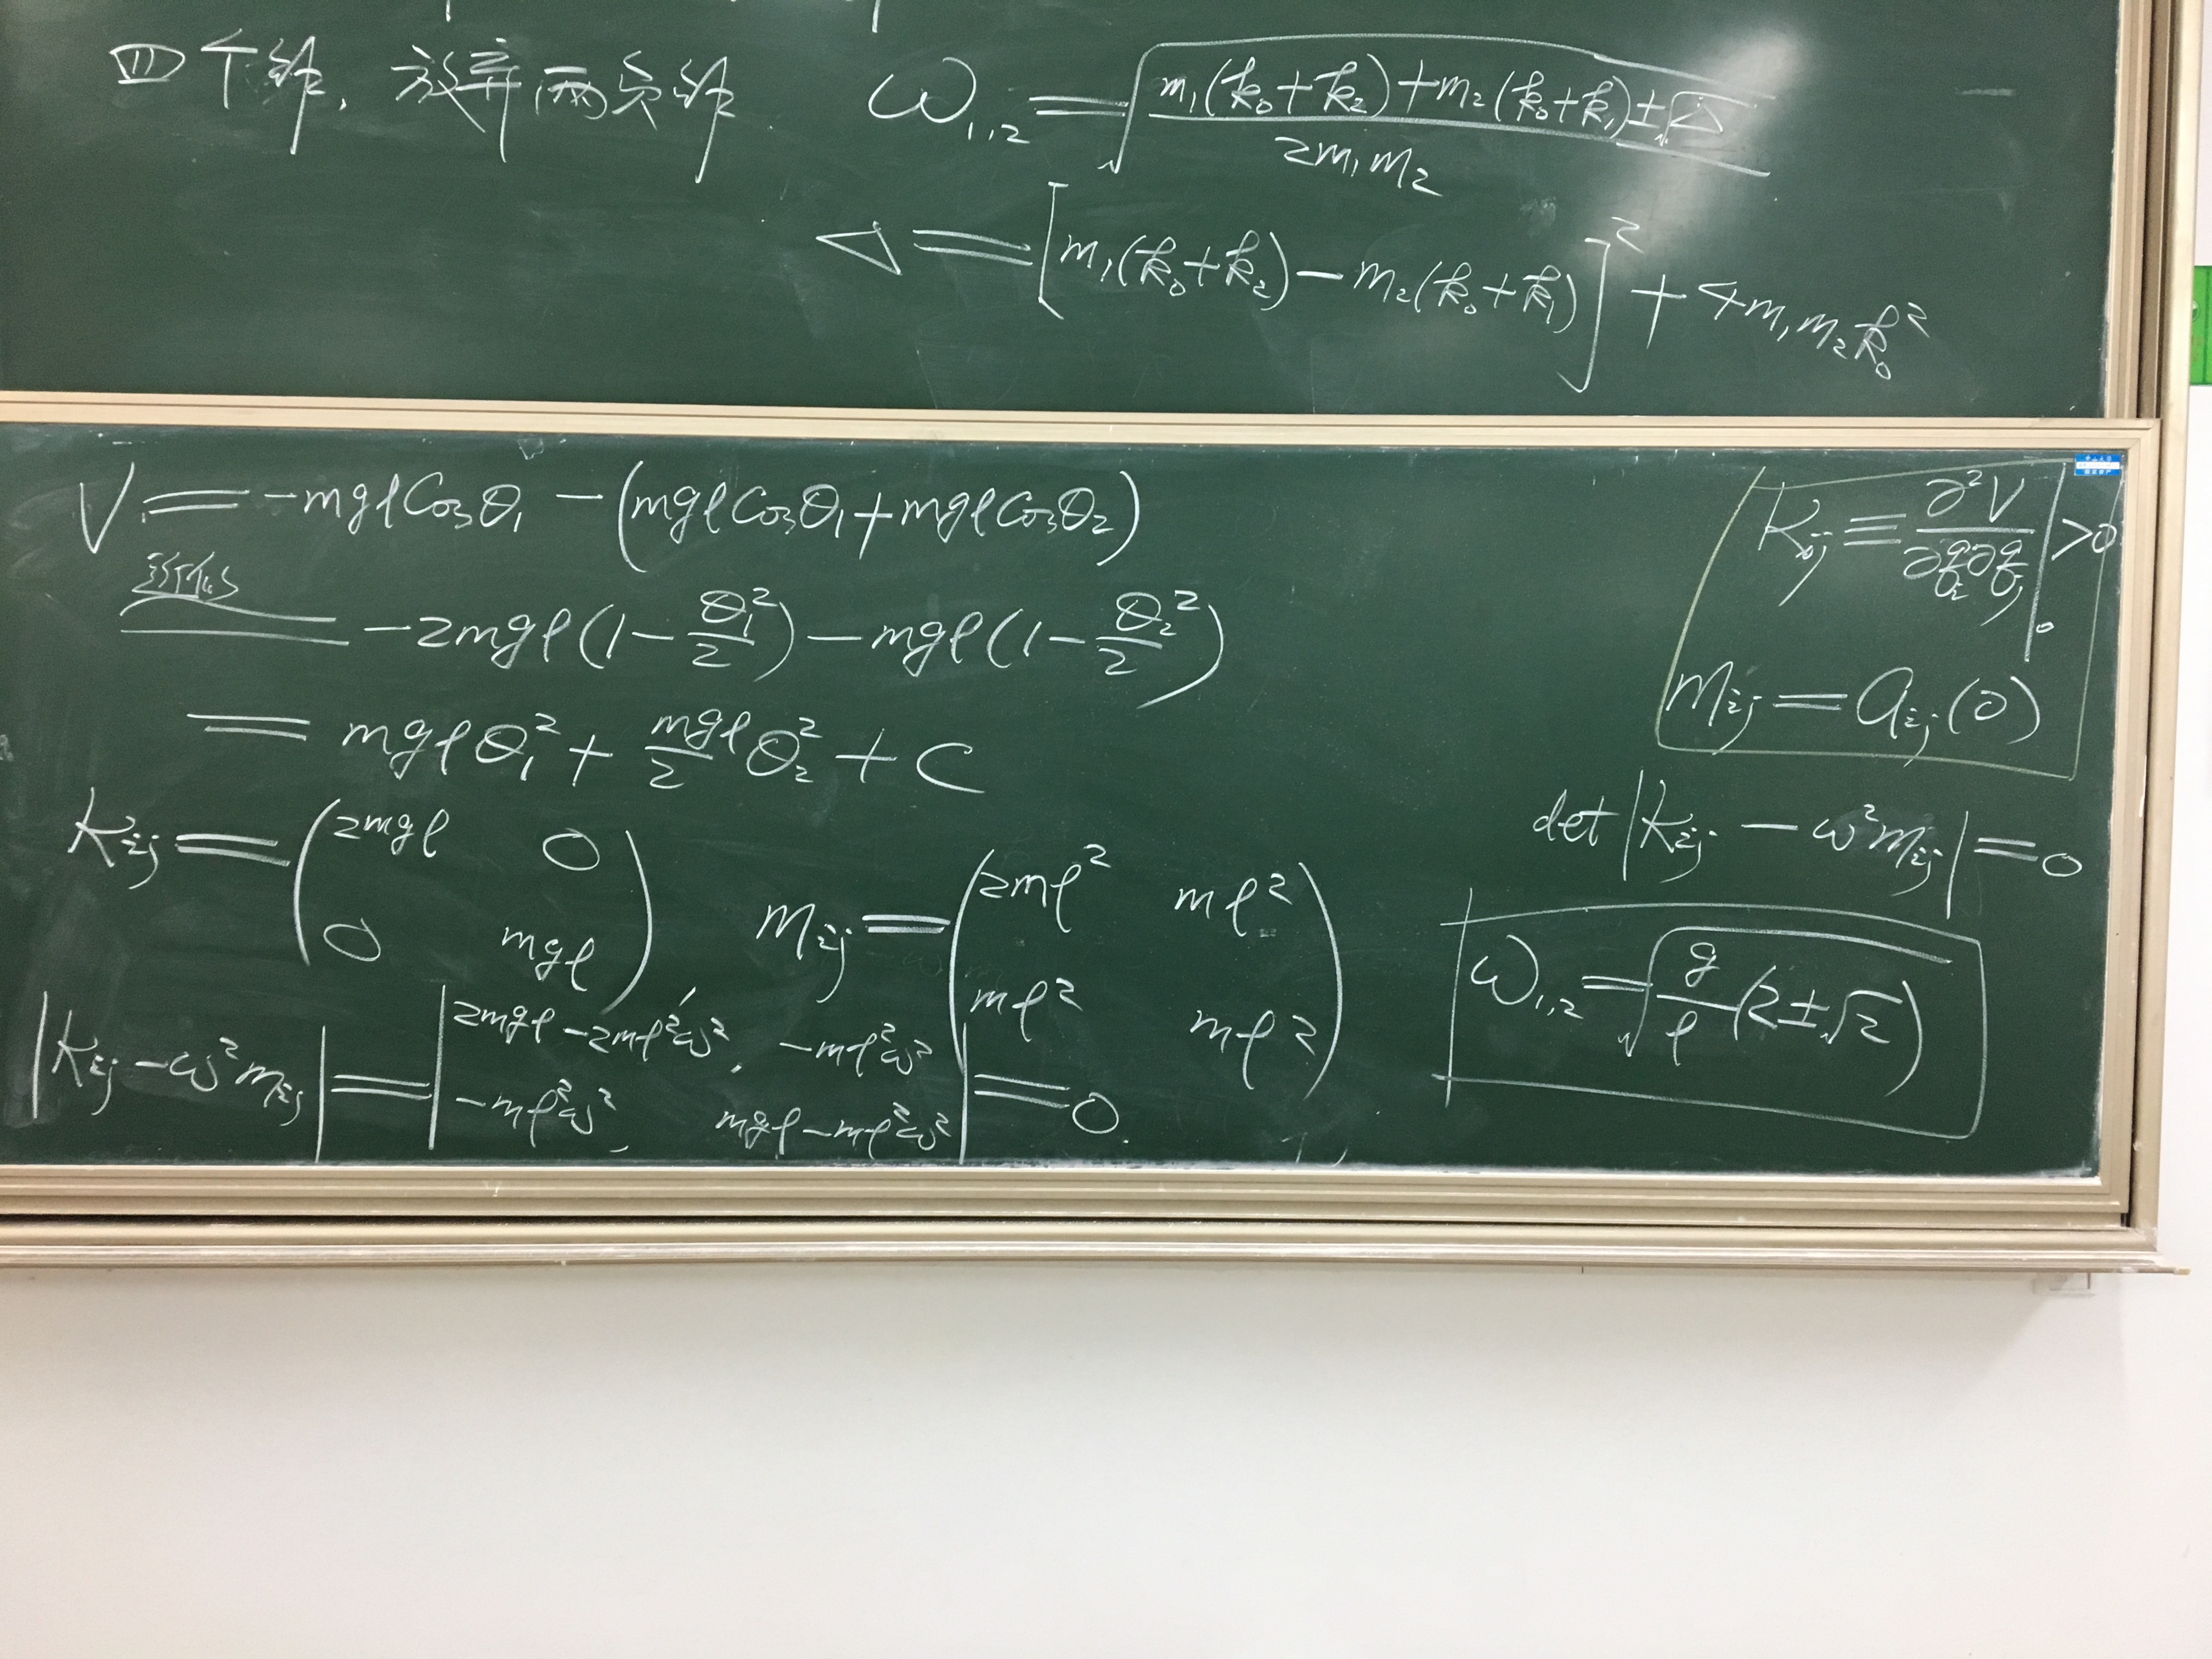 四个解, 放弃两负解. ω₁,₂ = √((m₁(k₀+k₂)+m₂(k₀+k₁)±√Δ)/(2m₁m₂))
Δ = [m₁(k₀+k₂)-m₂(k₀+k₁)]² + 4m₁m₂k₀²
V = -mglCosθ₁ - (mglCosθ₁+mglCosθ₂)
近似
= -2mgl(1-θ₁²/2) - mgl(1-θ₂²/2)
= mglθ₁² + mgl/2 θ₂² + C
Kᵢⱼ = (2mgl 0
0 mgl), mᵢⱼ = (2ml² ml²
ml² ml²)
|Kᵢⱼ-ω²mᵢⱼ| = |2mgl-2ml²ω², -ml²ω²
-ml²ω², mgl-ml²ω²| = 0.
Kᵢⱼ ≡ ∂²V/∂qᵢ∂qⱼ|₀ > 0
mᵢⱼ = aᵢⱼ(0)
det|Kᵢⱼ - ω²mᵢⱼ| = 0
ω₁,₂ = √(g/l (2±√2))